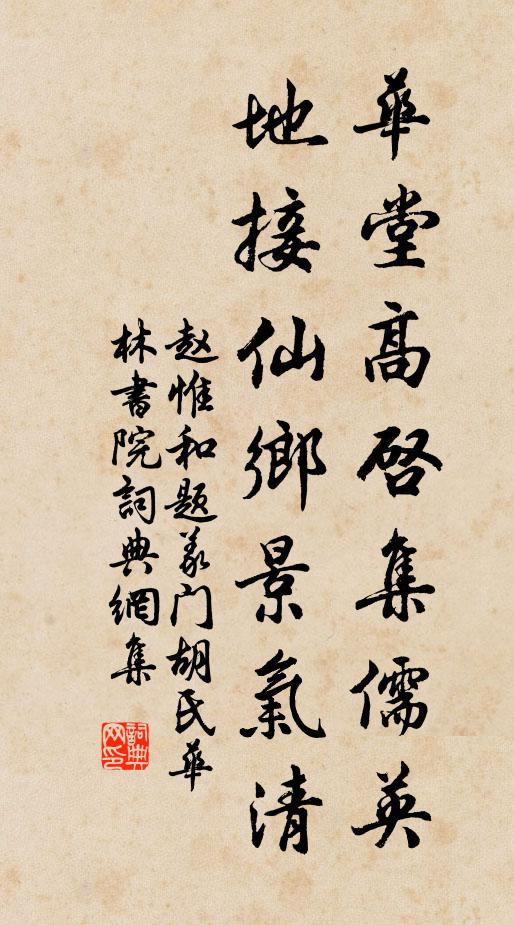 華堂高啓集儒英
地接仙鄉景氣清
赵惟和题义门胡氏華
林書院詞典網集
詞典
网印